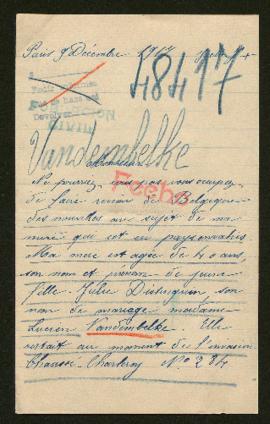 Paris 9 Décembre 1917
48417
CIVIL
Vandembelke
Monsieur
Ne pourriez vous pas vous occuper
de faire revenir de Belgique
des nouvelles au sujet de ma
mère qui est en pays envahis
Ma mère est agée de 40 ans,
son nom et prenom de jeune
fille Julie son
nom de mariage madame
Lucien Vandembelke. Elle
restait au moment de l'invasion
Chaussée Charleroy No 284